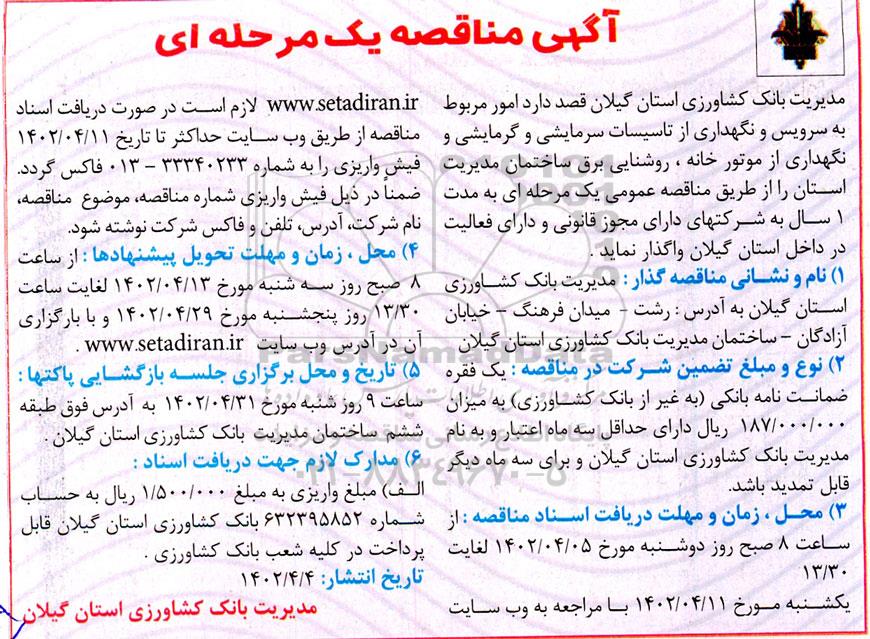 آگهی مناقصه یک مرحله ای
مدیریت بانک کشاورزی استان گیلان قصد دارد امور مربوط
به سرویس و نگهداری از تاسیسات سرمایشی و گرمایشی و
نگهداری از موتور خانه ، روشنایی برق ساختمان مدیریت
استان را از طریق مناقصه عمومی یک مرحله ای به مدت
۱ سال به شرکتهای دارای مجوز قانونی و دارای فعالیت
در داخل استان گیلان واگذار نماید .
۱) نام و نشانی مناقصه گذار : مدیریت بانک کشاورزی
استان گیلان به آدرس : رشت - میدان فرهنگ – خیابان
آزادگان – ساختمان مدیریت بانک کشاورزی استان گیلان
۲) نوع و مبلغ تضمین شرکت در مناقصه : یک فقره
ضمانت نامه بانکی (به غیر از بانک کشاورزی) به میزان
۱۸۷/۰۰۰/۰۰۰ ریال دارای حداقل سه ماه اعتبار و به نام
مدیریت بانک کشاورزی استان گیلان و برای سه ماه دیگر
قابل تمدید باشد.
۳) محل ، زمان و مهلت دریافت اسناد مناقصه : از
ساعت ۸ صبح روز دوشنبه مورخ ۱۴۰۲/۰۴/۰۵ لغایت ۱۳/۳۰
یکشنبه مورخ ۱۴۰۲/۰۴/۱۱ با مراجعه به وب سایت
www.setadiran.ir لازم است در صورت دریافت اسناد
مناقصه از طریق وب سایت حداکثر تا تاریخ ۱۴۰۲/۰۴/۱۱
فیش واریزی را به شماره ۳۳۳۴۰۲۳۳ – ۰۱۳ فاکس گردد.
ضمناً در ذیل فیش واریزی شماره مناقصه، موضوع مناقصه،
نام شرکت، آدرس، تلفن و فاکس شرکت نوشته شود.
۴) محل ، زمان و مهلت تحویل پیشنهادها : از ساعت
۸ صبح روز سه شنبه مورخ ۱۴۰۲/۰۴/۱۳ لغایت ساعت
۱۳/۳۰ روز پنجشنبه مورخ ۱۴۰۲/۰۴/۲۹ و با بارگزاری
آن در آدرس وب سایت www.setadiran.ir .
۵) تاریخ و محل برگزاری جلسه بازگشایی پاکتها :
ساعت ۹ روز شنبه مورخ ۱۴۰۲/۰۴/۳۱ به آدرس فوق طبقه
ششم ساختمان مدیریت بانک کشاورزی استان گیلان .
۶) مدارک لازم جهت دریافت اسناد :
الف) مبلغ واریزی به مبلغ ۱/۵۰۰/۰۰۰ ریال به حساب
شماره ۶۳۲۳۹۵۸۵۲ بانک کشاورزی استان گیلان قابل
پرداخت در کلیه شعب بانک کشاورزی .
تاریخ انتشار: ۱۴۰۲/۴/۴
مدیریت بانک کشاورزی استان گیلان
ParsNamadData
۰۲۱-۸۸۳۴۹۶۷۰-۵